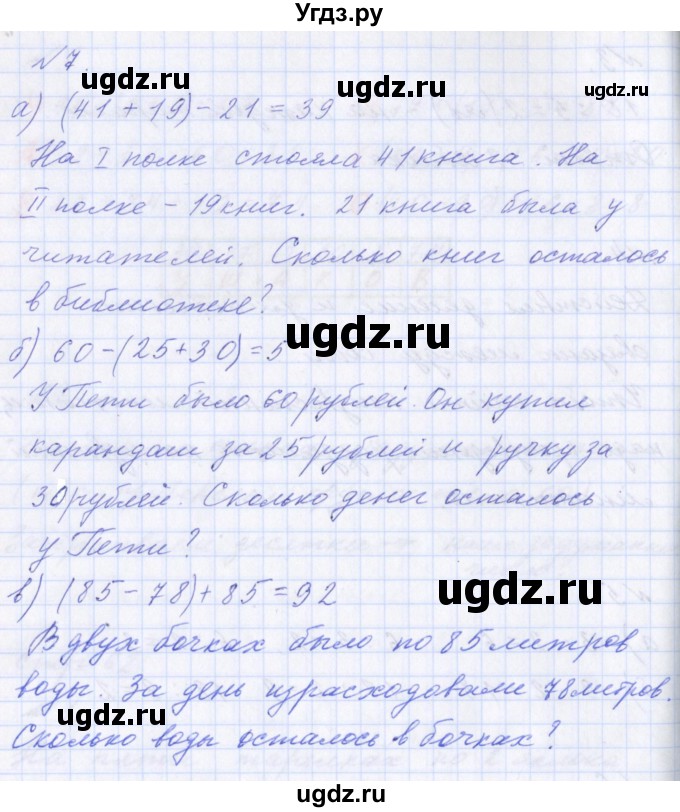 Угдз.ру
№7.
ugdz.ru ugdz.ru
а) (41 + 19) - 21 = 39
На I полке стояла 41 книга. На
ugdz.ru ugdz.ru
II полке - 19 книг. 21 книга была у
читателей. Сколько книг осталось
в библиотеке?
ugdz.ru
б) 60 - (25 + 30) = 5
У Пети было 60 рублей. Он купил
ugdz.ru ugdz.ru
карандаш за 25 рублей и ручку за
30 рублей. Сколько денег осталось
у Пети?
ugdz.ru
в) (85 - 78) + 85 = 92
В двух бочках было по 85 литров
воды. За день израсходовали 78 литров.
ugdz.ru ugdz.ru
Сколько воды осталось в бочках?
Угдз.ру